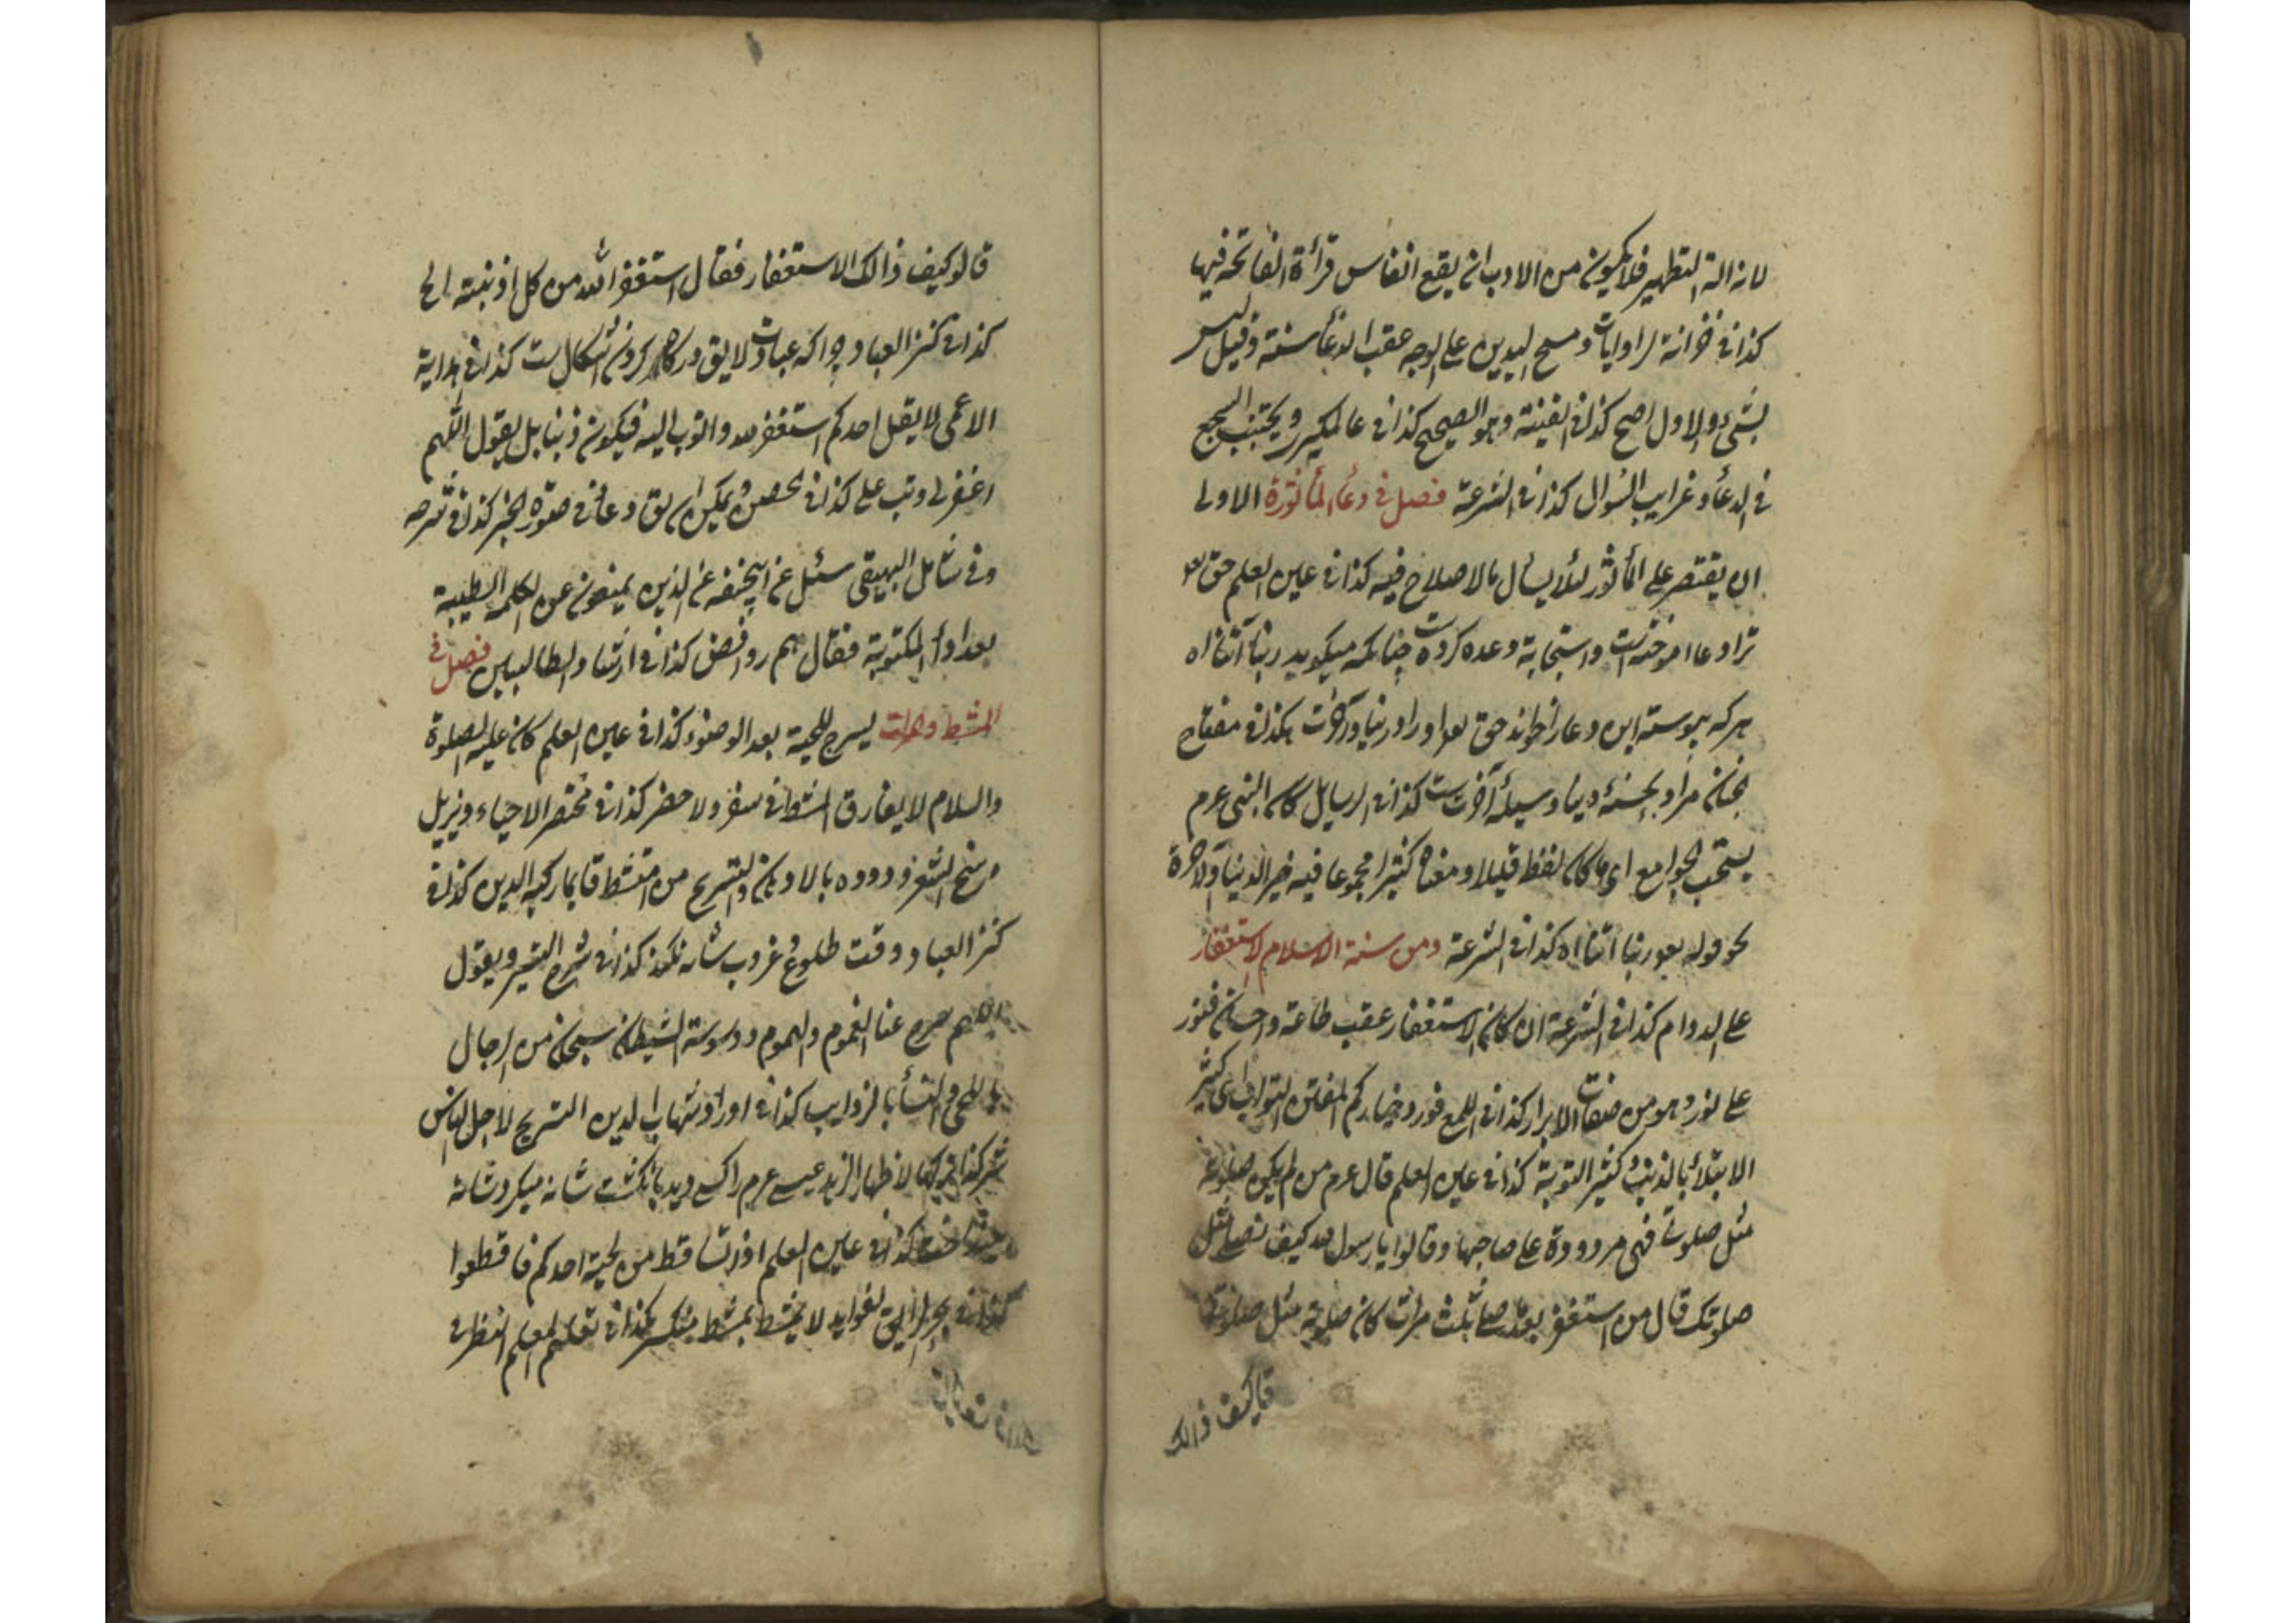 لازالة التطهير فلا يكون من الادب ان يقع انفاس قرأة الفاتحة فيها
كذا في خزانة الروايات و مسح اليدين على الوجه عقب الدعأ سنة وقيل ليس
بشئ والاول اصح كذا في القنية وهو الصحيح كذا في عالمكيرى ويجتنب السجع
في الدعأ وغرايب السوال كذا في الشرعة فصل في دعأ المأثورة الاولى
ان يقتصر على المأثور لئلا يسأل مالا صلاح فيه كذا في عين العلم حق
ترا دعا اموختست واستجابة وعده كردست چنانكه ميكويد ربنا آتنا اه
هركه پيوسته اين دعا را خواند حق او را در دنيا و آخرت كذا في مفتاح
جنان مراد بحسنۀ دنيا وسيلۀ آخرتست كذا في الرسايل كان النبى عرم
يستحب الجوامع اى ما كان لفظه قليلا ومعناه كثيرا مجموعا فيه خير الدنيا والاخرة
نحو قوله ربنا اتنا اه كذا في الشرعة ومن سنة الاسلام الاستغفار
على الدوام كذا في الشرعة ان كان الاستغفار عقب طاعة واحسان فنور
على نور وهو من صفات الابرار كذا في اللمع خياركم المفتن التواب اى كثير
الابتلأ بالذنب وكثير التوبة كذا في عين العلم قال عرم من لم يكن صلوته
مثل صلوتى فهى مردودة على صاحبها وقالوا يا رسول الله كيف نصلى مثل
صلوتك قال من استغفر بعد ثلث مرات كان صلوته مثل صلوتى
كيف ذالك
قالو كيف ذالك الاستغفار فقال استغفر الله من كل اذنبته الخ
كذا في كنز العباد چراكه عبادت لايق كذا في هداية
الاعمى لا يقل احدكم استغفر الله واتوب اليه فيكون ذنبا بل يقول اللهم
اغفرلى وتب على كذا في في صورة الخبر كذا في شرحه
وفي شامل البيهقى سئل عن ابيحنفه عن الذين يمنعون عن الكلمة الطيبة
بعد ادأ المكتوبة فقال هم روافض كذا في ارشاد الطالبين فصل في
المشط ليسرح للحية بعد الوضوء كذا في عين العلم كان عليه الصلوة
والسلام لا يفارق المشط في سفر ولا حضر كذا في مختصر الاحياء ويزيل
وسخ الشعر ودوده بالادهان والتسريح من امتشط قايما ركبه الدين كذا في
كنز العباد ووقت طلوع وغروب شانه نكند كذا في شرح ويقول
اللهم سرح عنا الغموم والهموم ووسوسة الشيطان سبحان من الرجال
باللحى والنسأ بالذوايب كذا في اوراد شهاب الدين التسريح لاجل الناس
شرك لاظهار الزهد عيسى عرم راكسى ديد بانكشت شانه ميكرد شانه
كذا في عين العلم اذا تساقط من لحية احدكم فاقطعوا
كذا في بحر الرايق لا يمتشط بمشط منكسر كذا في تعليم المتعلم النظر في